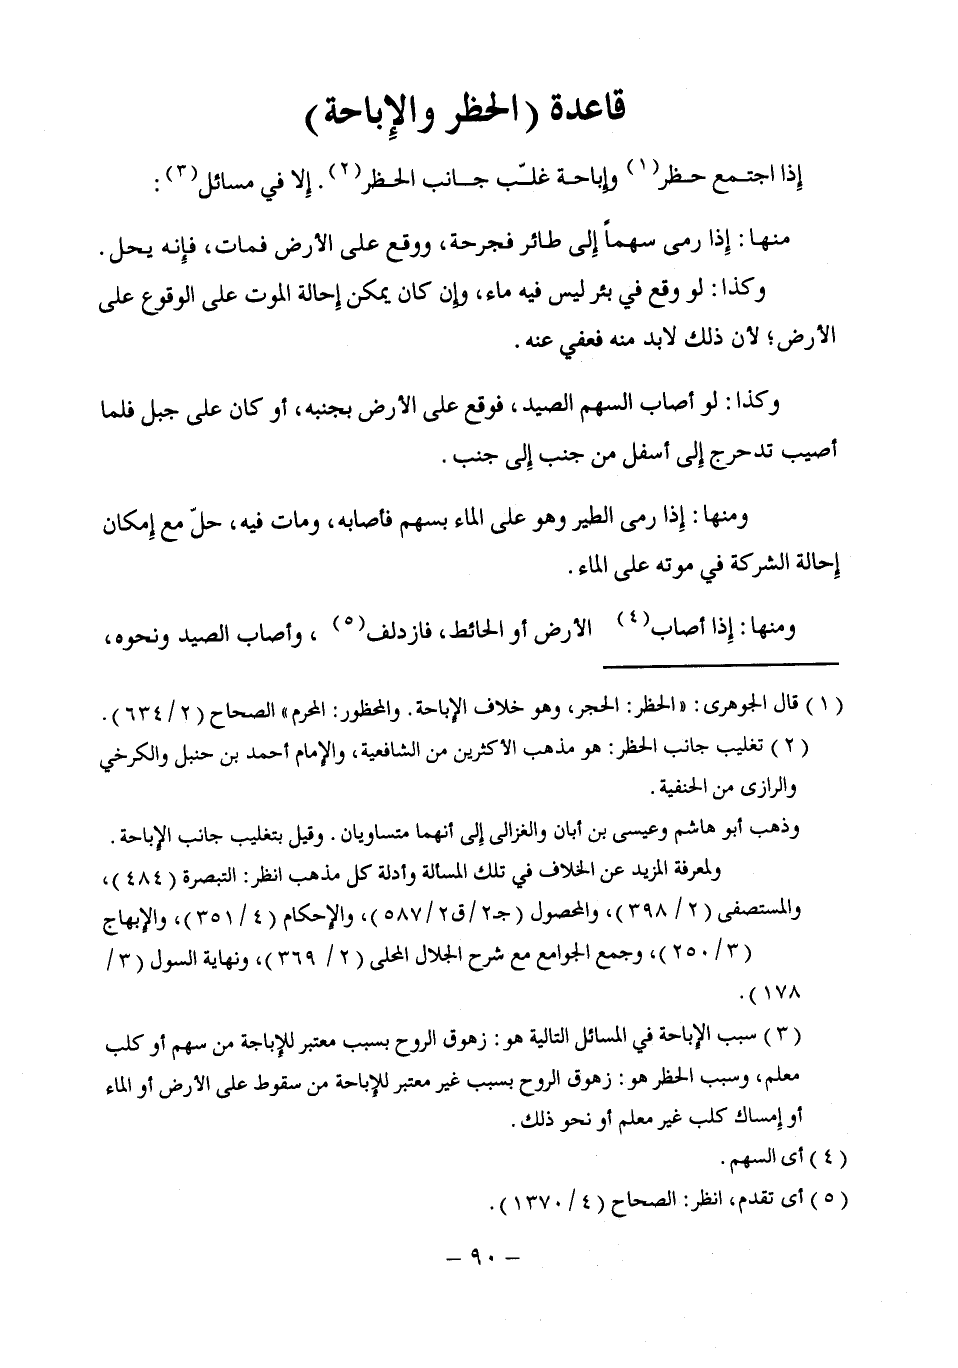 قاعدة (الحظر والإباحة)
إذا اجتمع حظر(١) وإباحة غلّب جانب الحظر(٢). إلا في مسائل(٣):
منها: إذا رمى سهماً إلى طائر فجرحة، ووقع على الأرض فمات، فإنه يحل.
وكذا: لو وقع في بئر ليس فيه ماء، وإن كان يمكن إحالة الموت على الوقوع على
الأرض؛ لأن ذلك لابد منه فعفي عنه.
وكذا: لو أصاب السهم الصيد، فوقع على الأرض بجنبه، أو كان على جبل فلما
أصيب تدحرج إلى أسفل من جنب إلى جنب.
ومنها: إذا رمى الطير وهو على الماء بسهم فأصابه، ومات فيه، حلّ مع إمكان
إحالة الشركة في موته على الماء.
ومنها: إذا أصاب(٤) الأرض أو الحائط، فازدلف(٥)، وأصاب الصيد ونحوه،
(١) قال الجوهرى: «الحظر: الحجر، وهو خلاف الإباحة. والمحظور: المحرم» الصحاح (٢/ ٦٣٤).
(٢) تغليب جانب الحظر: هو مذهب الأكثرين من الشافعية، والإمام أحمد بن حنبل والكرخي
والرازى من الحنفية.
وذهب أبو هاشم وعيسى بن أبان والغزالى إلى أنهما متساويان. وقيل بتغليب جانب الإباحة.
ولمعرفة المزيد عن الخلاف في تلك المسألة وأدلة كل مذهب انظر: التبصرة (٤٨٤)،
والمستصفى (٢/ ٣٩٨)، والمحصول (جـ٢/ق٢/ ٥٨٧)، والإحكام (٤/ ٣٥١)، والإبهاج
(٣/ ٢٥٠)، وجمع الجوامع مع شرح الجلال المحلى (٢/ ٣٦٩)، ونهاية السول (٣/
١٧٨).
(٣) سبب الإباحة في المسائل التالية هو: زهوق الروح بسبب معتبر للإباجة من سهم أو كلب
معلم، وسبب الحظر هو: زهوق الروح بسبب غير معتبر للإباحة من سقوط على الأرض أو الماء
أو إمساك كلب غير معلم أو نحو ذلك.
(٤) أى السهم.
(٥) أى تقدم، انظر: الصحاح (٤/ ١٣٧٠).
– ٩٠ –